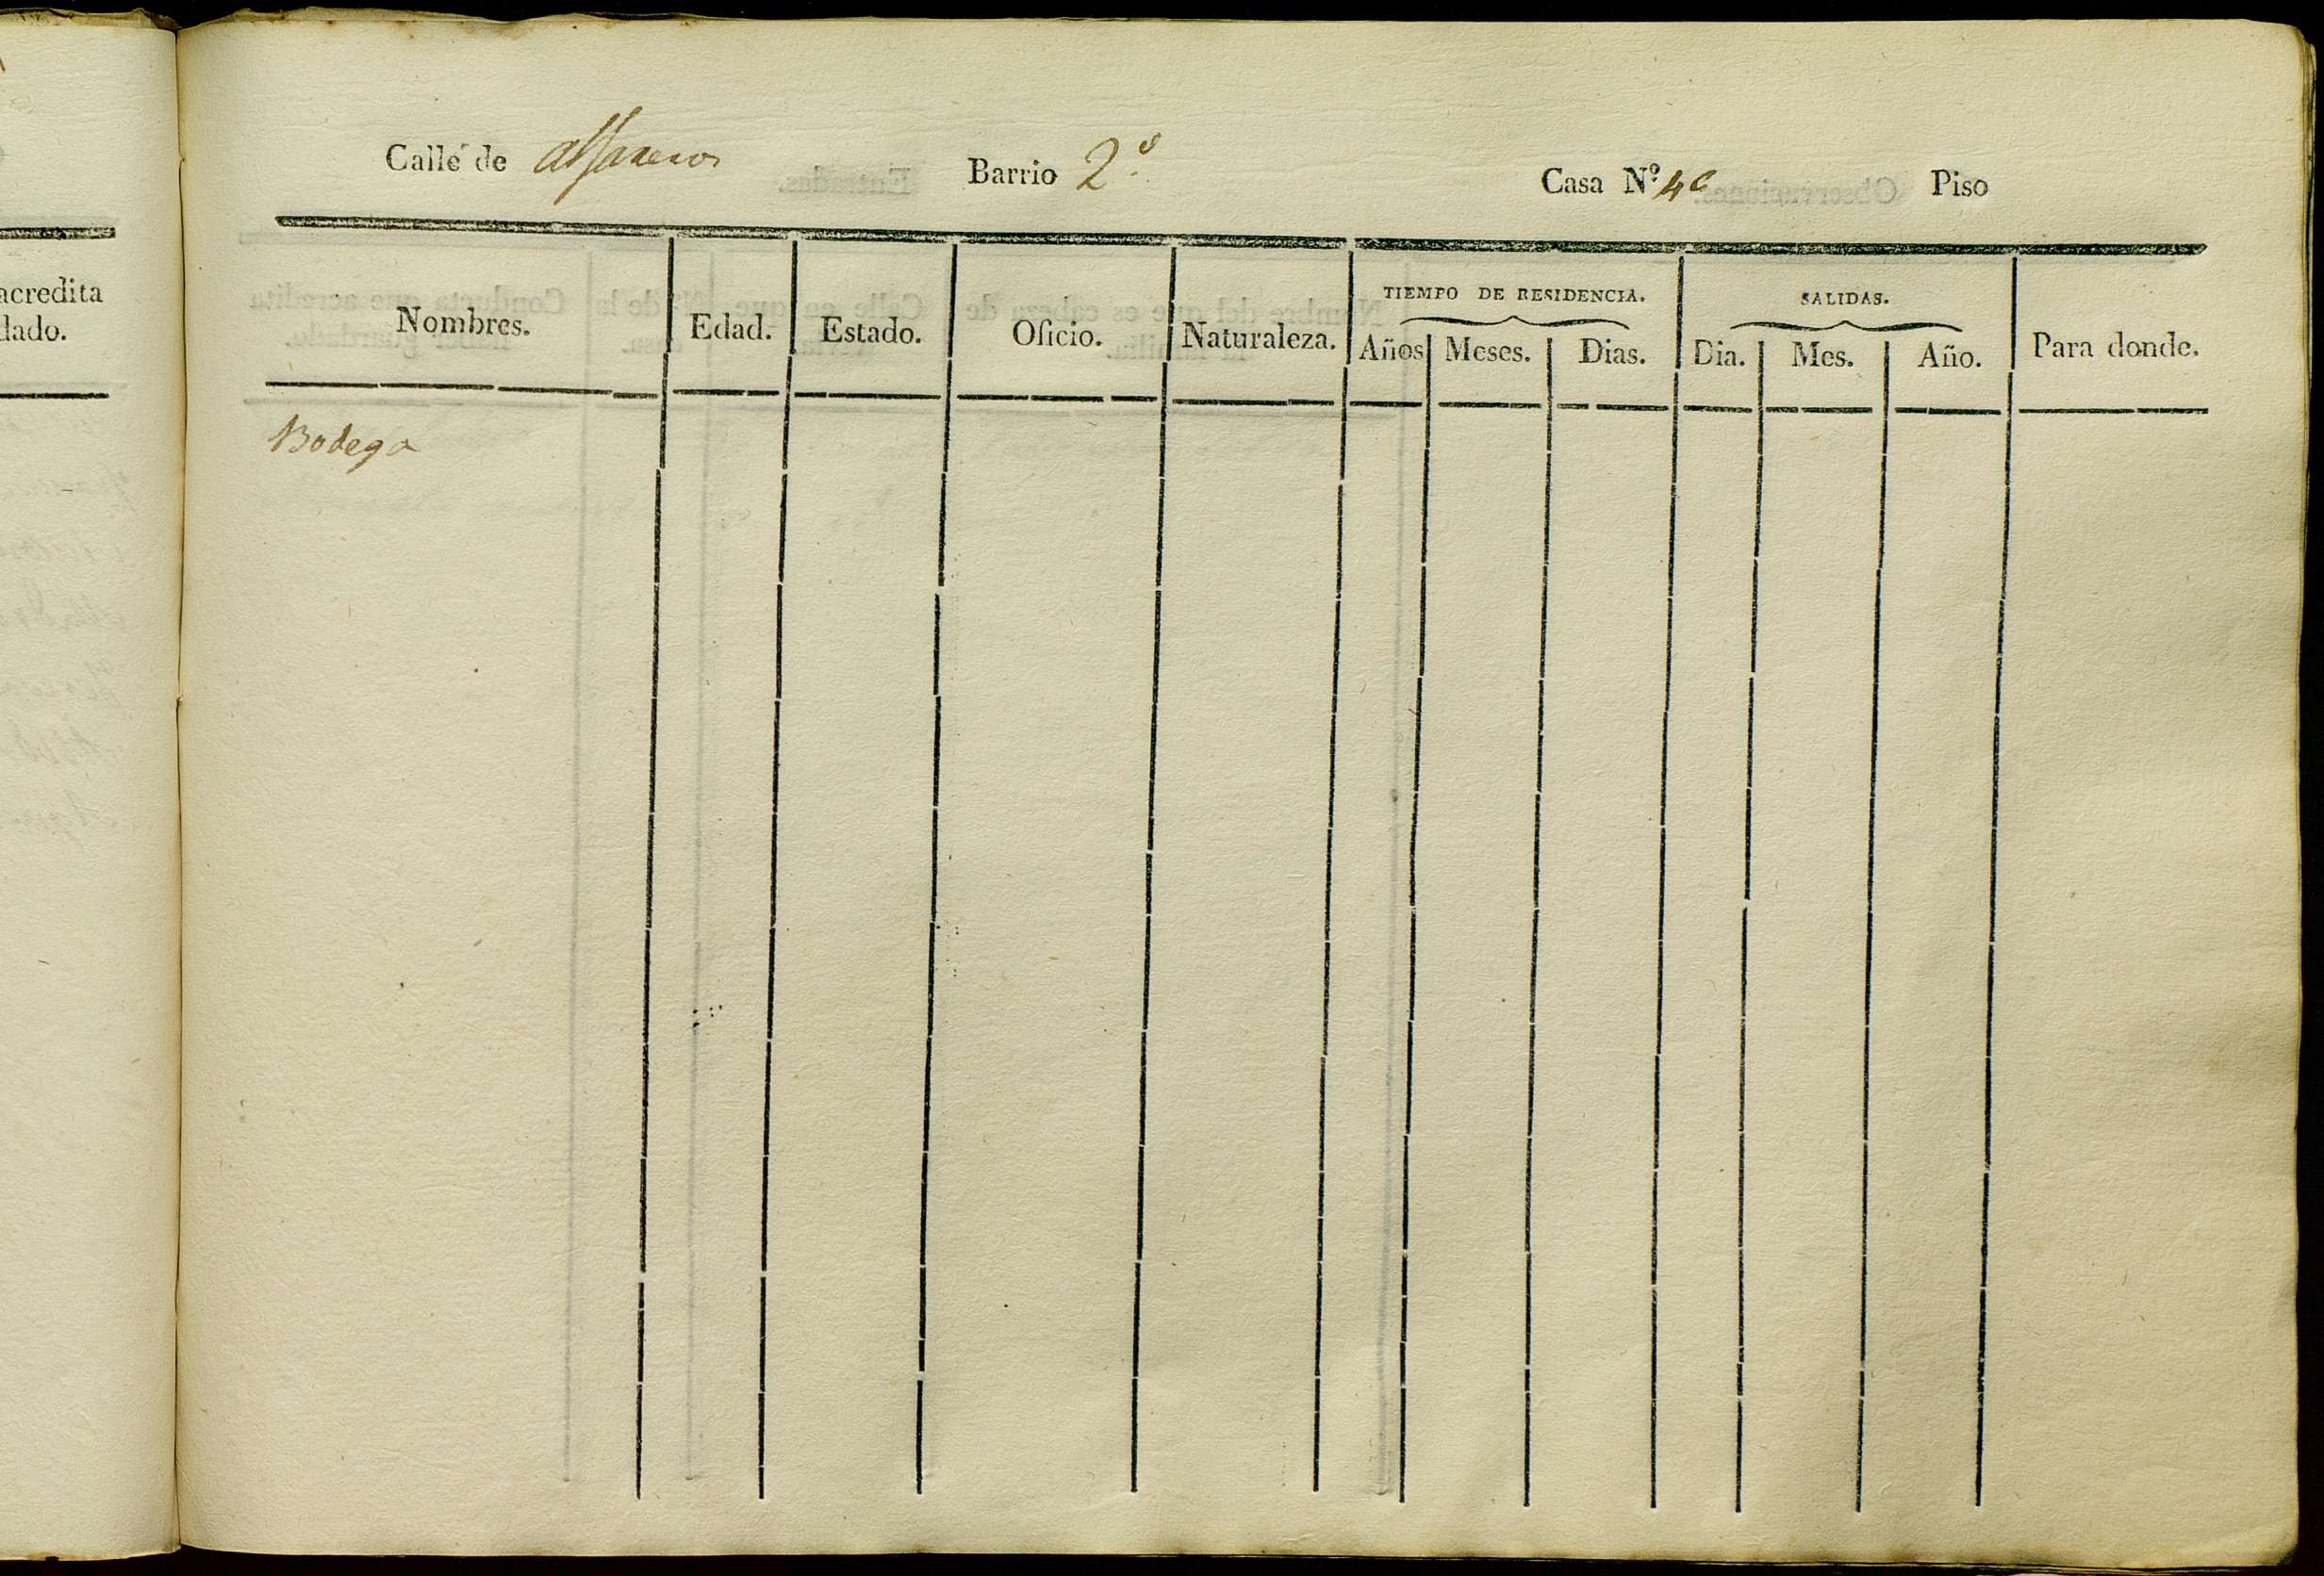 acredita
dado.
Calle de alfareros Barrio 2.º Casa N.º 46 Piso
Nombres. Edad. Estado. Oficio. Naturaleza. TIEMPO DE RESIDENCIA. SALIDAS. Para donde.
Años Meses. Dias. Dia. Mes. Año.
Bodega